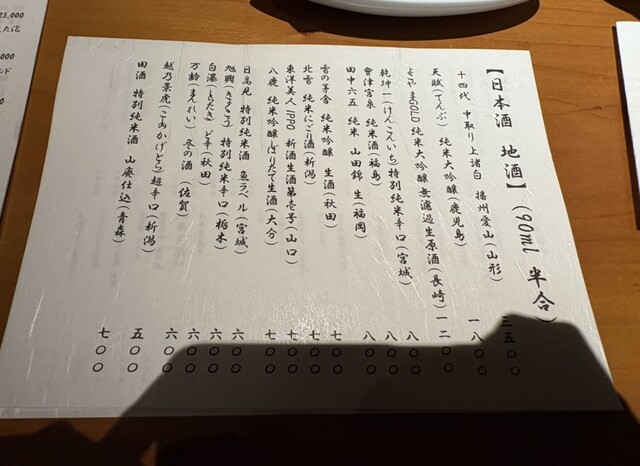 【日本酒 地酒】(90ml 半合)
十四代 中取り上諸白 播州愛山(山形) 三五〇〇
天賦(てんぶ) 純米大吟醸(鹿児島) 一八〇〇
よこやまGOLD 純米大吟醸無濾過生原酒(長崎) 一二〇〇
乾坤一(けんこんいち)特別純米辛口(宮城) 八〇〇
會津宮泉 純米酒(福島) 八〇〇
田中六五 純米 山田錦 生(福岡) 八〇〇
雪の茅舎 純米吟醸 生酒(秋田) 七〇〇
北雪 純米にごり酒(新潟) 七〇〇
東洋美人 IPPO 新酒生酒第壱号(山口) 七〇〇
八鹿 純米吟醸しぼりたて生酒(大分) 七〇〇
日高見 特別純米酒 魚ラベル(宮城) 六〇〇
旭興(きょくこう)特別純米辛口(栃木) 六〇〇
白瀑(しらたき)ど辛(秋田) 六〇〇
万齢(まんれい) 冬の酒 (佐賀) 六〇〇
越乃景虎(こしのかげとら)超辛口(新潟) 五〇〇
田酒 特別純米酒 山廃仕込(青森) 七〇〇
25,000